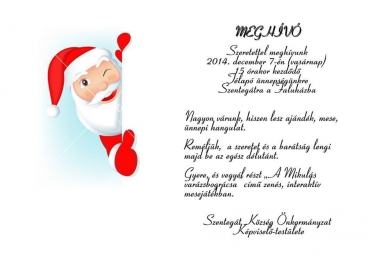 MEGHÍVÓ
Szeretettel meghívunk
2014. december 7-én (vasárnap)
15 órakor kezdődő
Télapó ünnepségünkre
Szentegátra a Faluházba
Nagyon várunk, hiszen lesz ajándék, mese,
ünnepi hangulat.
Reméljük, a szeretet és a barátság lengi
majd be az egész délutánt.
Gyere, és vegyél részt „A Mikulás
varázsbográcsa című zenés, interaktív
mesejátékban.
Szentegát Község Önkormányzat
Képviselő-testülete